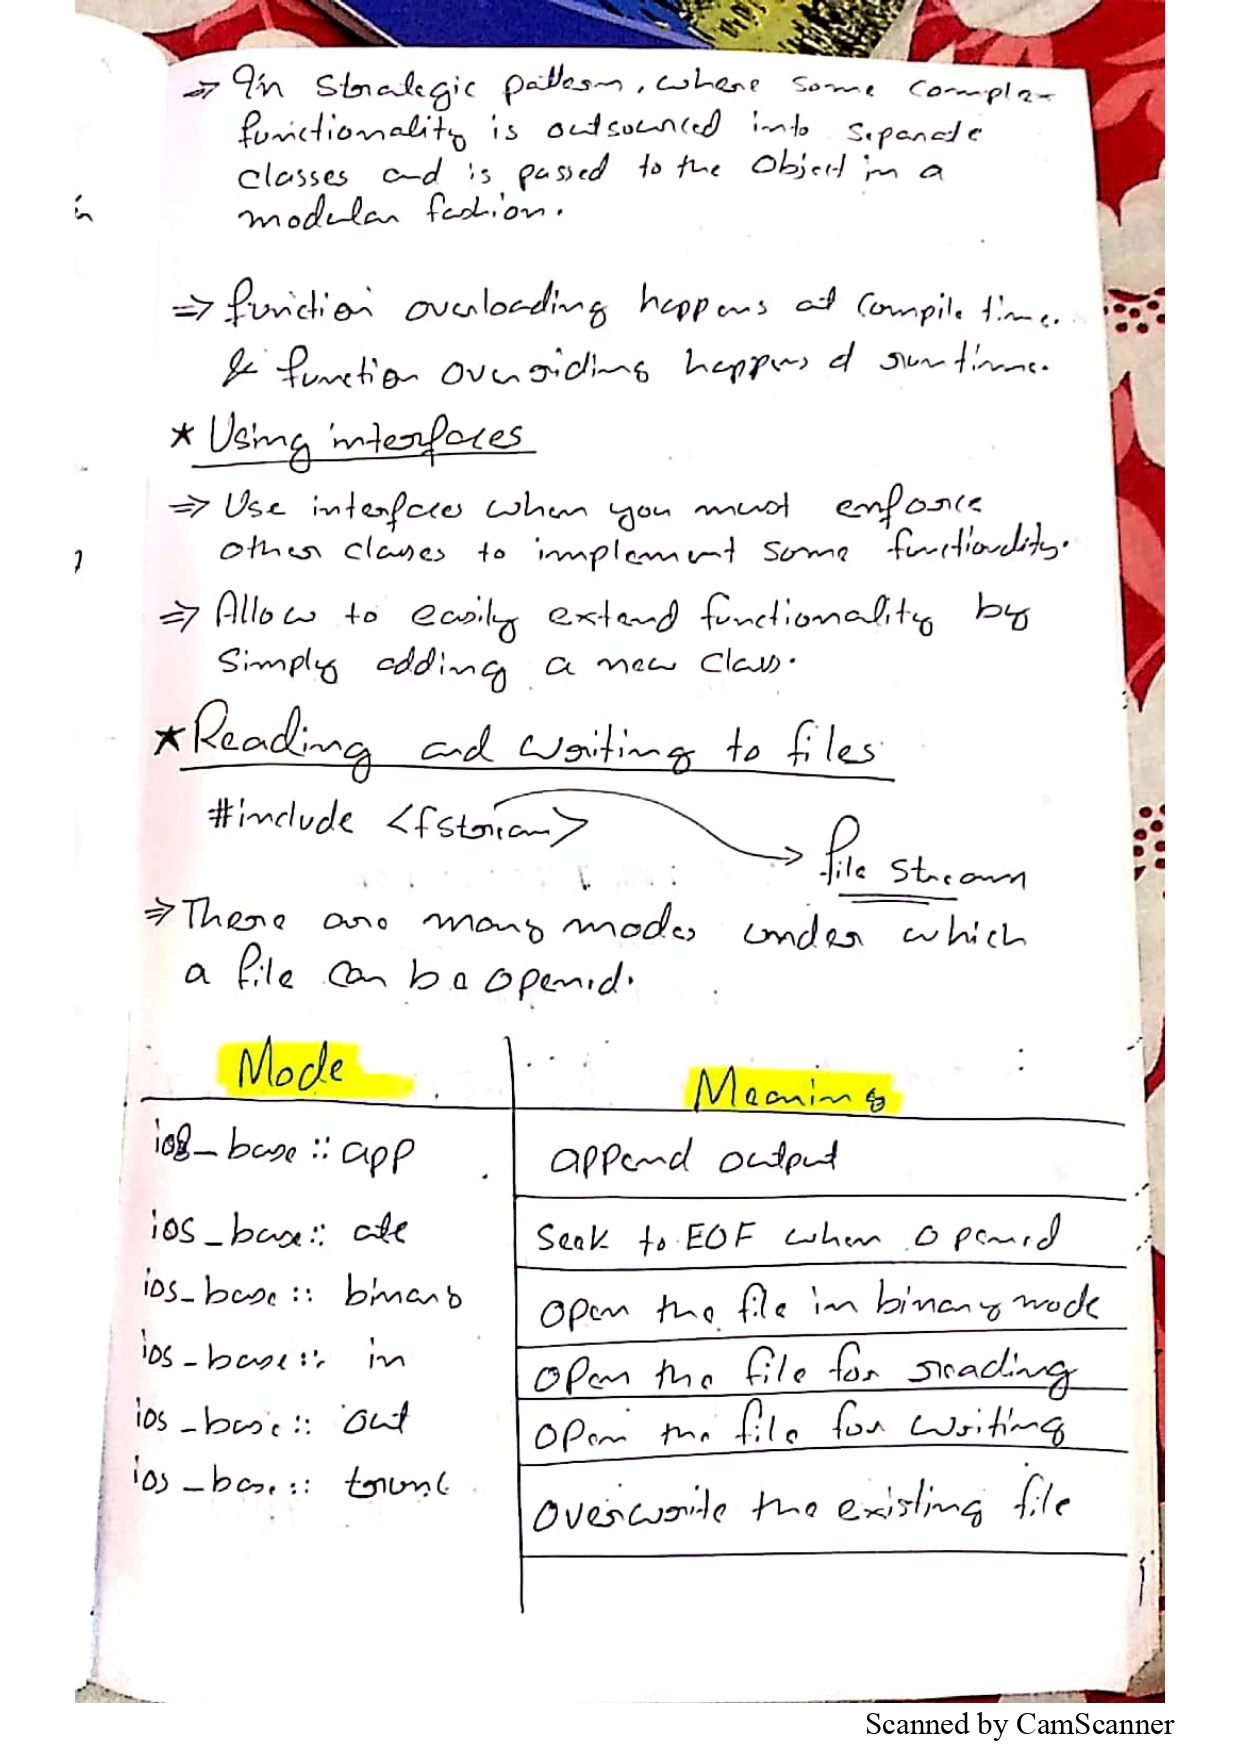 ⇒ In Strategic pattern, where some complex
functionality is outsourced into separate
classes and is passed to the Object in a
modular fashion.
⇒ function overloading happens at compile time.
& function overriding happens at runtime.
* Using interfaces
⇒ Use interfaces when you must enforce
other classes to implement some functionality.
⇒ Allow to easily extend functionality by
Simply adding a new class.
* Reading and writing to files
#include <fstream> → file stream
⇒ There are many modes under which
a file can be opened.
Mode | Meaning
ios_base :: app | append output
ios_base :: ate | Seek to EOF when opened
ios_base :: binary | open the file in binary mode
ios_base :: in | open the file for reading
ios_base :: out | open the file for writing
ios_base :: trunc | overwrite the existing file
Scanned by CamScanner